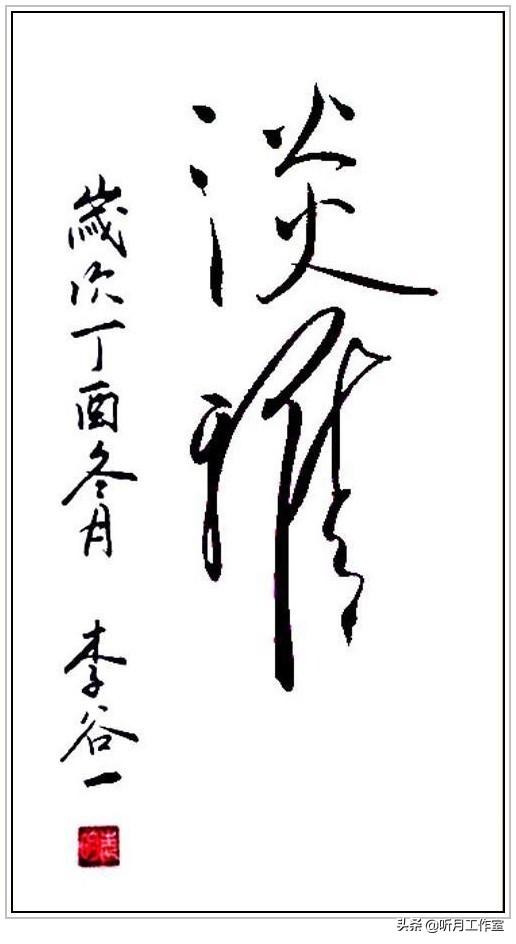 淡雅
歲次丁酉冬月 李谷一
头条 @听月工作室